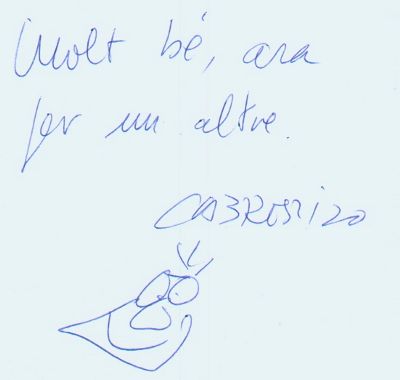 Molt bé, ara
per un altre.
CABRERIZO